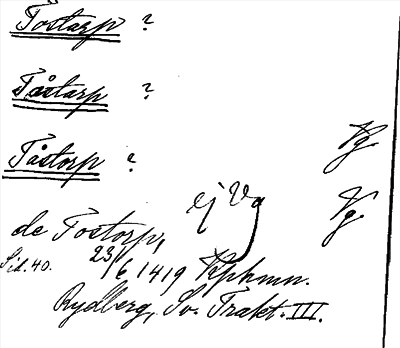 Tostarp ?
Tåstarp ?
Tåstorp ?
Vg
ej Vg
Vg.
de Tostorp,
Sid. 40.
23/6 1419 Kphmn.
Rydberg, Sv. Trakt. III.